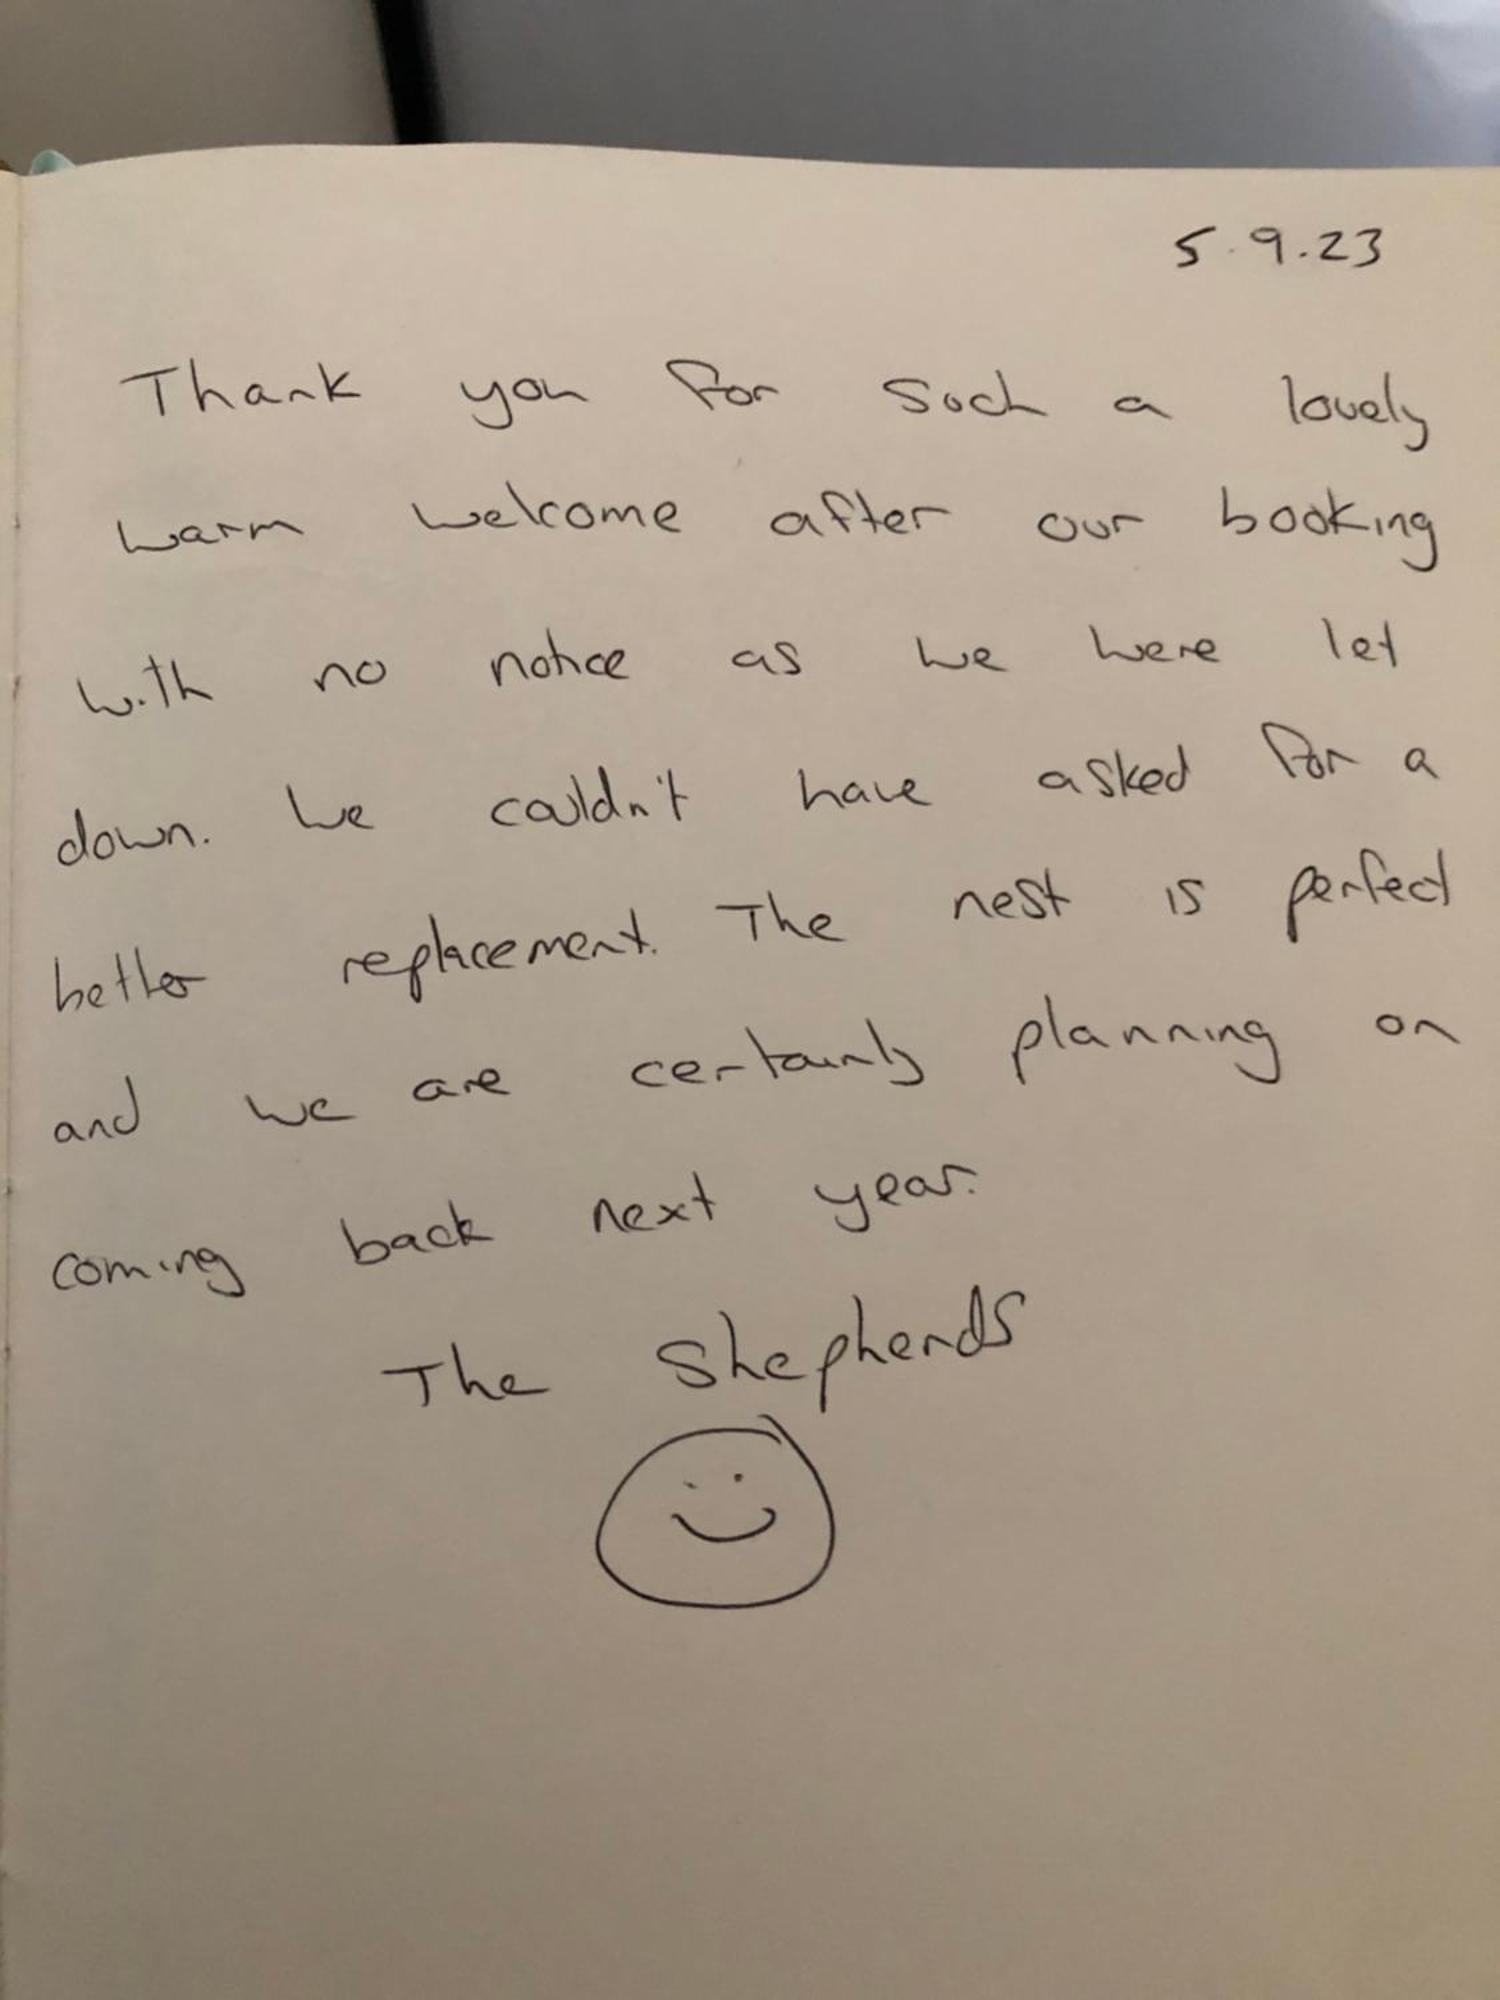 5.9.23
Thank you for such a lovely
warm welcome after our booking
with no notice as we were let
down. We couldn't have asked for a
better replacement. The nest is perfect
and we are certainly planning on
coming back next year.
The Shepherds